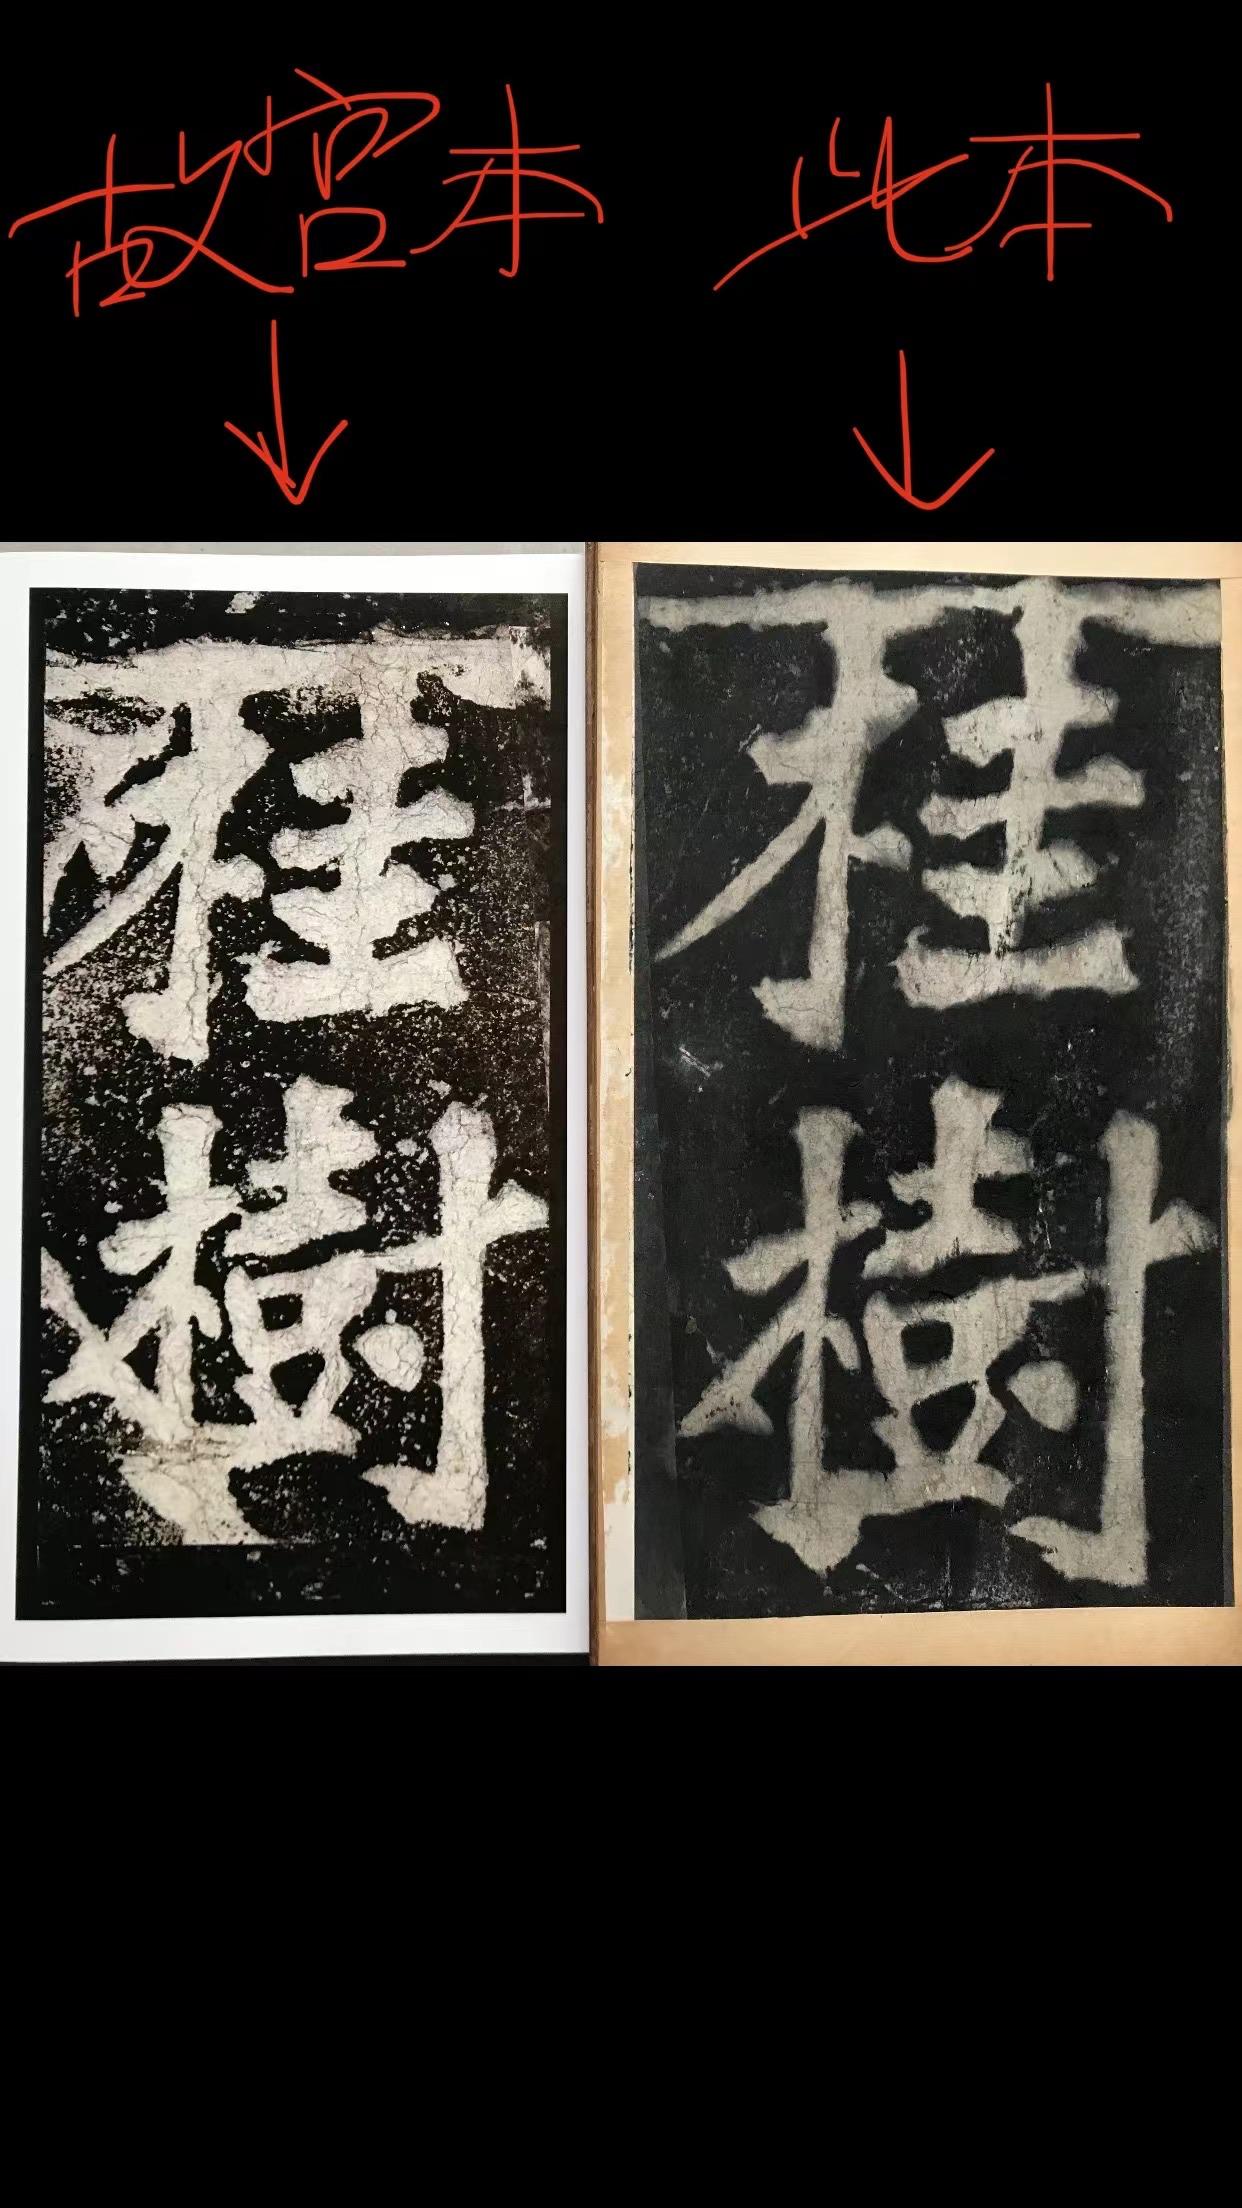 故宫本 此本
桂 桂
樹 樹